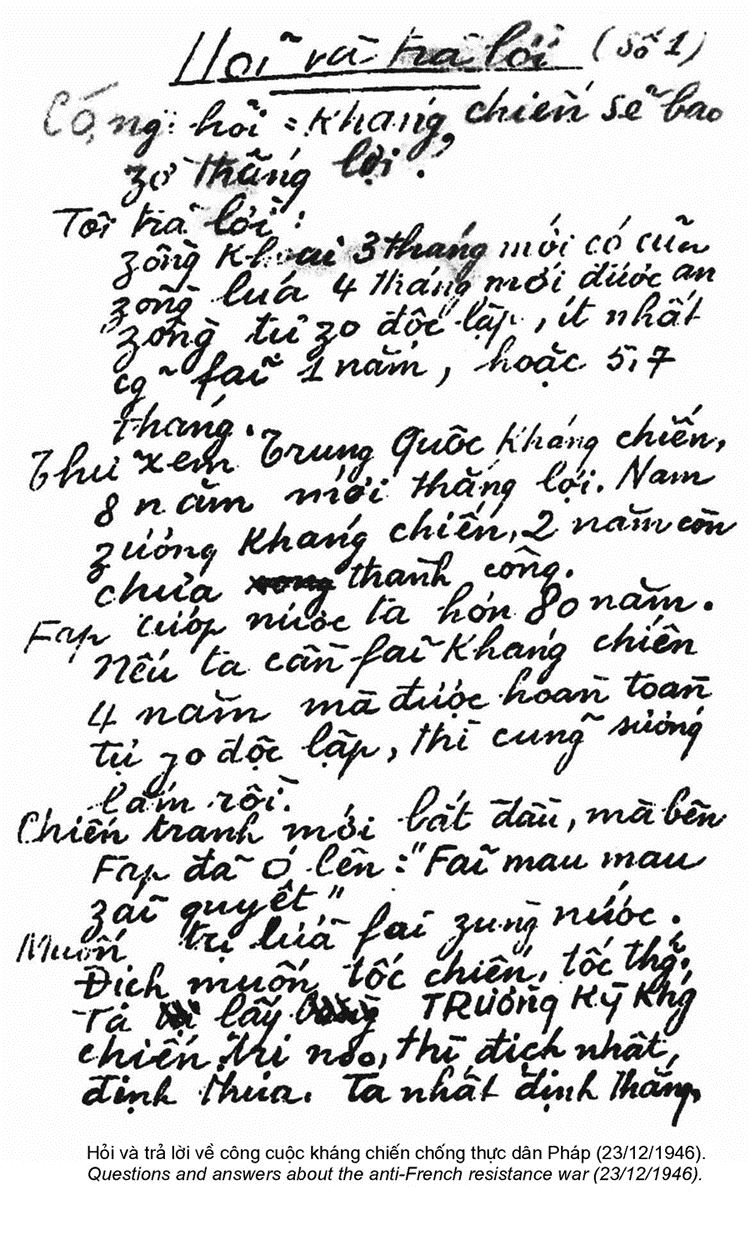 Hỏi và trả lời (số 1)
Có ng. hỏi : Kháng chiến sẽ bao
zờ thắng lợi ?
Tôi trả lời :
zồng khoai 3 tháng mới có củ
zồng lúa 4 tháng mới được ăn
zồng tự zo độc lập, ít nhất
cg fải 1 năm, hoặc 5, 7
tháng.
Thử xem Trung Quốc kháng chiến,
8 năm mới thắng lợi. Nam
zương kháng chiến, 2 năm còn
chưa thành công.
Fap cướp nước ta hơn 80 năm.
Nếu ta cần fải kháng chiến
4 năm mà được hoàn toàn
tự zo độc lập, thì cũng sướng
lắm rồi.
Chiến tranh mới bắt đầu, mà bên
Fap đã ó lên : "Fải mau mau
zải quyết"
Muốn trị lửa fải zùng nước.
Địch muốn tốc chiến, tốc thg.
Ta lấy TRƯỜNG KỲ Khg
chiến trị nó, thì địch nhất
định thua. Ta nhất định thắng.
Hỏi và trả lời về công cuộc kháng chiến chống thực dân Pháp (23/12/1946).
Questions and answers about the anti-French resistance war (23/12/1946).